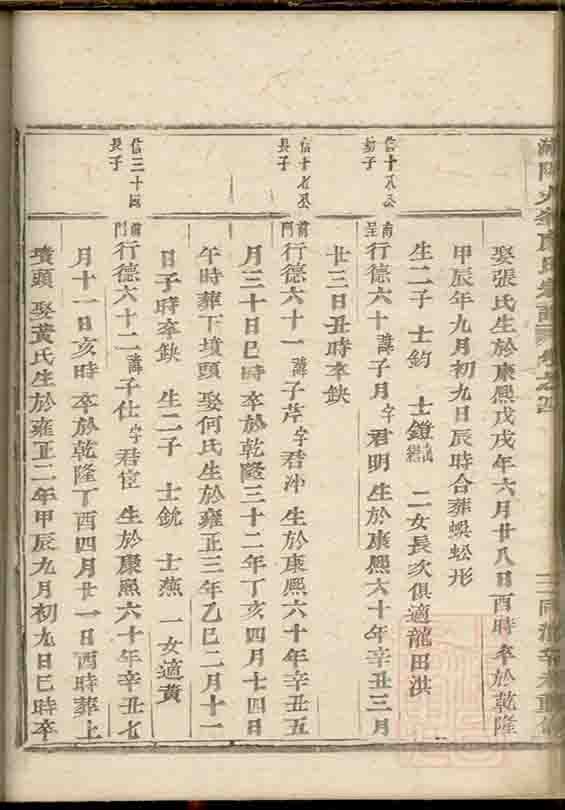 娶張氏生於康熙戊戌年六月廿八日酉時卒於乾隆
甲辰年九月初九日辰時合葬蜈蚣形
生二子 士鈞 士鐙 二女長次俱適龍田洪
信十八公
幼子
南呈行德六十諱子月字君明 生於康熙六十年辛丑三月
廿三日丑時卒缺
信十七公
長子
前門行德六十一諱子芹字君冲 生於康熙六十年辛丑五
月三十日巳時卒於乾隆三十二年丁亥四月十四日
午時葬下墳頭 娶何氏生於雍正三年乙巳二月十一
日子時卒缺 生二子 士銃 士燕 一女適黃
信三十四
長子
前門行德六十二諱子仕字君宦 生於康熙六十年辛丑七
月十一日亥時卒於乾隆丁酉四月廿一日酉時葬上
墳頭 娶黃氏生於雍正二年甲辰九月初九日巳時卒